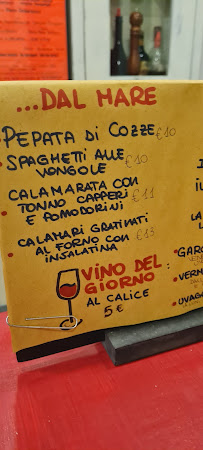 ...DAL MARE
• PEPATA Di COZZE €10
• SPAGHETTI ALLE €10
VONGOLE
• CALAMARATA CON
TONNO CAPPERI €11
E POMODORINI
• CALAMARI GRATINATI
AL FORNO CON €13
INSALATINA
VINO DEL
GIORNO :
AL CALICE
5 €
GARG
VERN
UVAGG